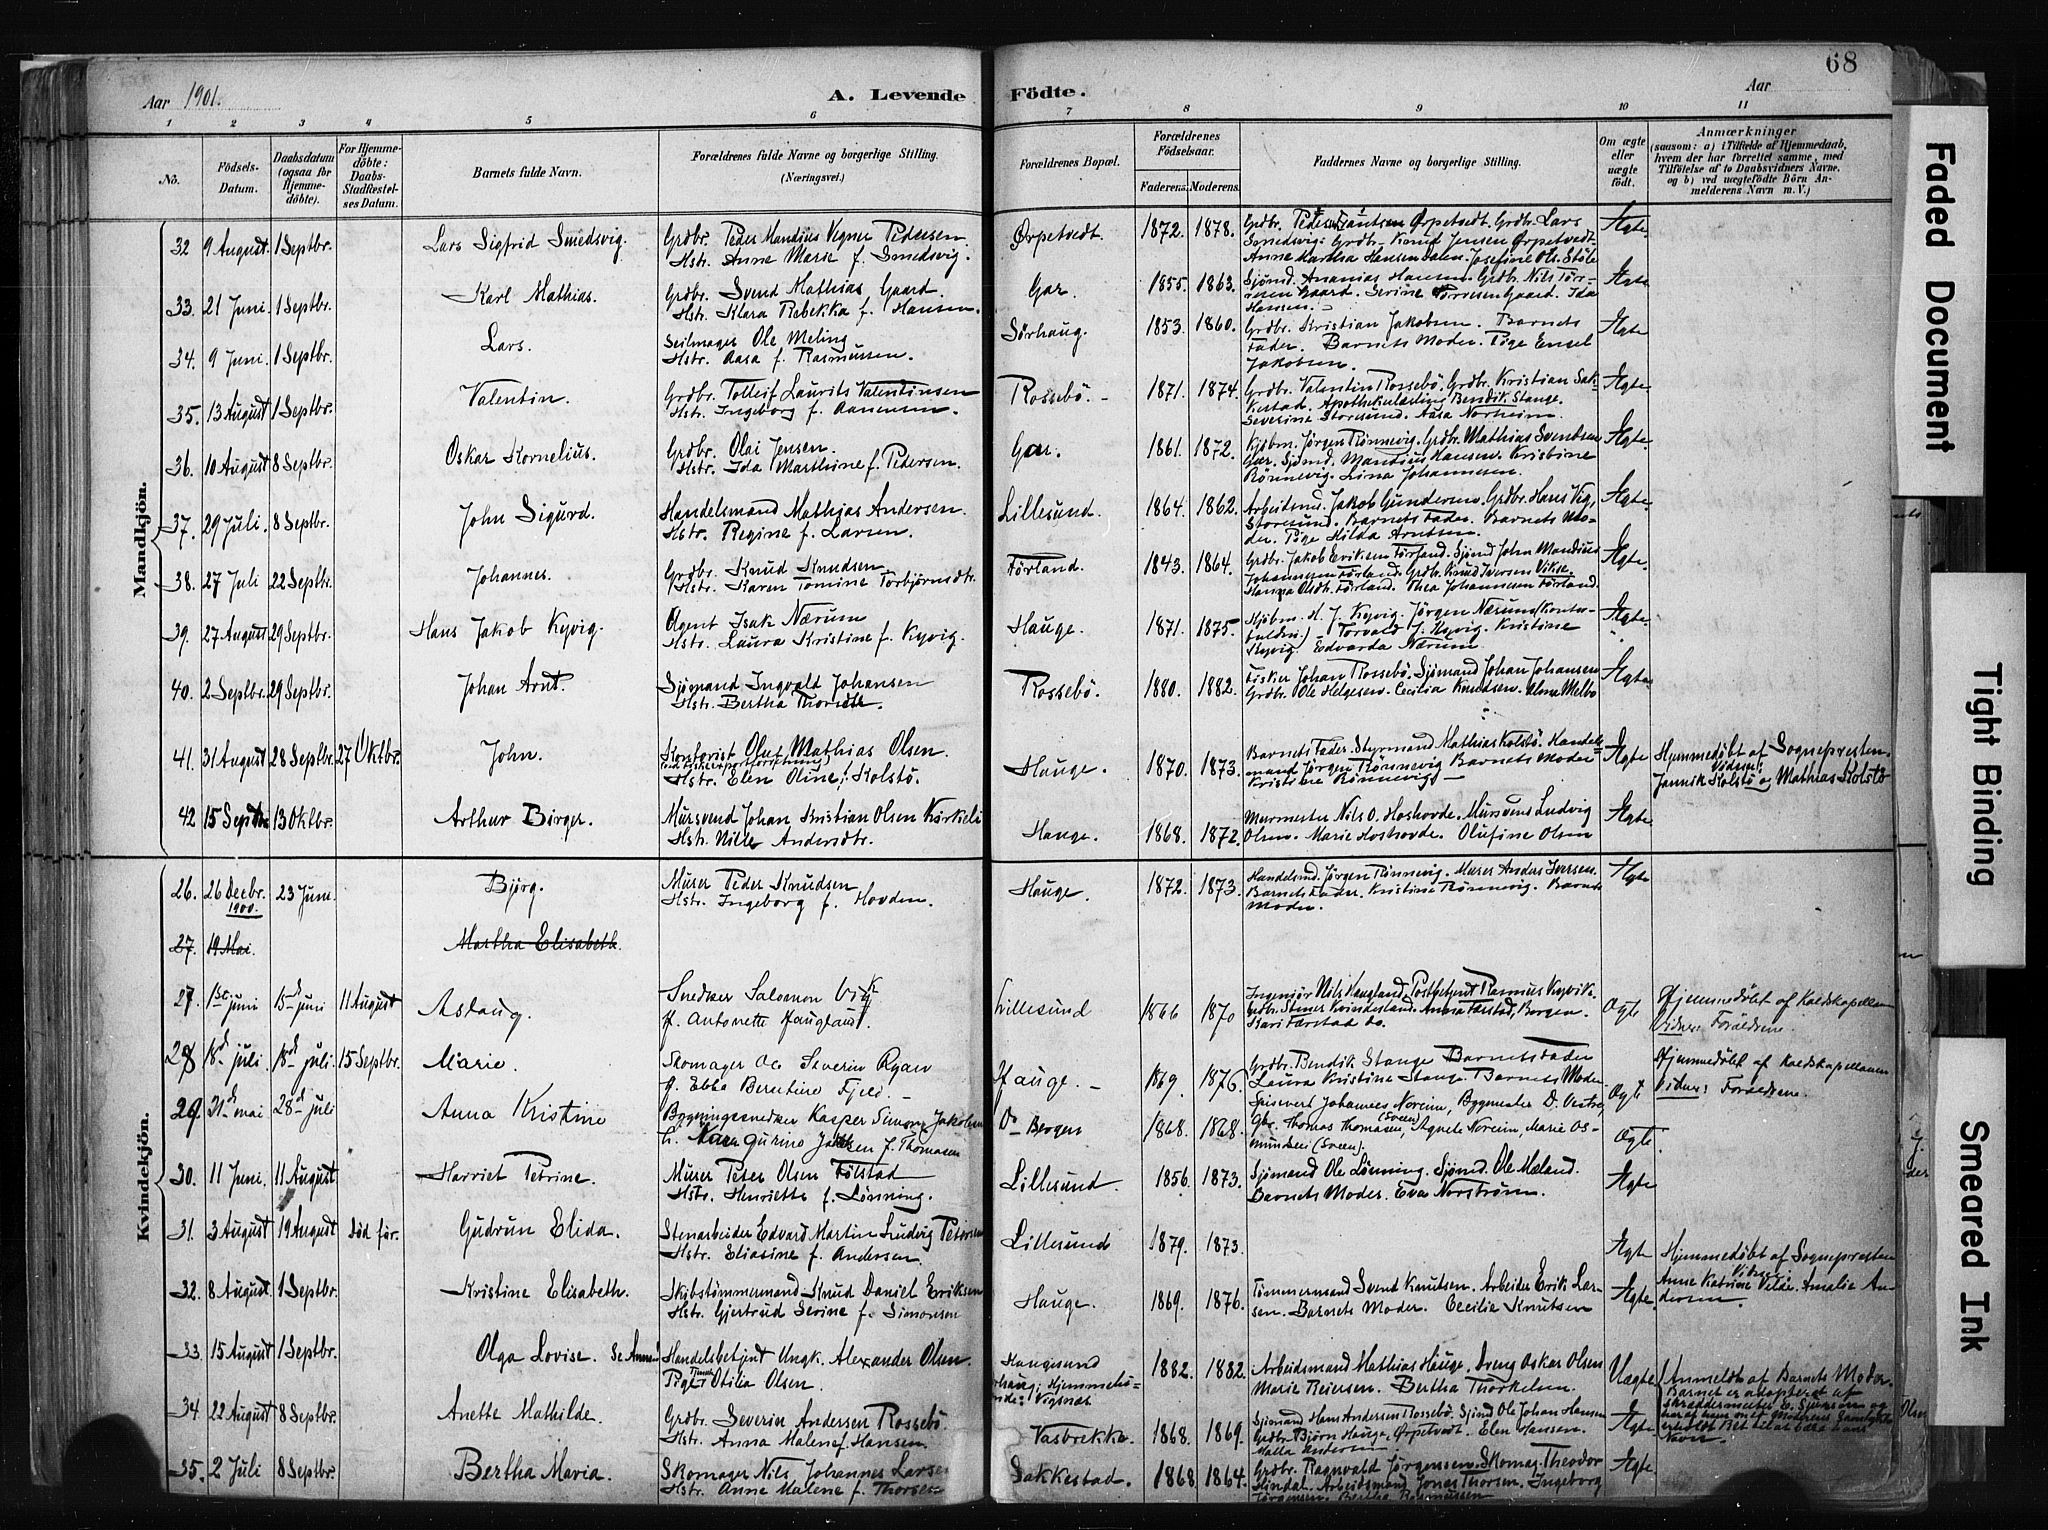 68
Aar 1901.
A. Levende Födte.
Aar
1 2 3 4 5 6 7 8 9 10 11
No.
Födsels-Datum.
Daabsdatum (ogsaa for Hjemmedöbte).
For Hjemmedöbte: Daabs-Stadfæstelses Datum.
Barnets fulde Navn.
Forældrenes fulde Navne og borgerlige Stilling. (Næringsvei.)
Forældrenes Bopæl.
Forældrenes Födselsaar.
Faderens. Moderens.
Faddernes Navne og borgerlige Stilling.
Om ægte eller uægte födt.
Anmærkninger
(saasom: a) i Tilfælde af Hjemmedaab, hvem der har forrettet samme, med Tilföielse af to Daabsvidners Navne, og b) ved uægtefödte Börn Anmelderens Navn m. V.)
Mandkjön.
32 9 August. 1 Septbr. Lars Sigfrid Smedsvig. Grdbr. Peder Mandius Vegner Pedersen. Hstr. Anne Marie f. Smedsvig. Ørpetvedt. 1872. 1878. Grdbr. Peder Knutsen Ørpetvedt. Grdbr. Lars Smedsvig. Grdbr. Knud Jensen Ørpetvedt. Anne Martha Hansen Dalen. Josefine Ols. Støle Ægte.
33. 21 Juni. 1 Septbr. Karl Mathias. Grdbr. Svend Mathias Gaard. Hstr. Klara Rebekka f. Hansen. Gar. 1855. 1863. Sjømd. Ananias Hansen. Grdbr. Nils Torresen Gaard. Serine Torresen Gaard. Ida Hansen. Ægte
34. 9 Juni. 1 Septbr. Lars. Seilmager Ole Meling Hstr. Aasa f. Rasmussen. Sørhaug. 1853. 1860. Grdbr. Kristian Jakobsen. Barnets Fader. Barnets Moder. Pige Engel Jakobsen. Ægte
35. 13 August 1 Septbr. Valentin. Grdbr. Tolleif Laurits Valentinsen Hstr. Ingeborg f. Aanensen. Rossebö. 1871. 1874. Grdbr. Valentin Rossebö. Grdbr. Kristian Sakkestad. Apothekerlærling Bendik Stange. Severine Storesund. Aasa Norheim. Ægte
36. 10 August 8 Septbr. Oskar Kornelius. Grdbr. Olai Jensen. Hstr. Ida Marthine f. Pedersen. Gar. 1861. 1872. Kjøbm. Jørgen Rønnevig. Grdbr. Mathias Svendsen Gar. Sjömd. Mandius Hansen. Kristine Rönnevig. Lina Johannesen. Ægte
37. 29 Juli. 8 Septbr. John Sigurd. Handelsmand Mathias Andersen. Hstr. Regine f. Larsen. Lillesund. 1864. 1862. Arbeidsmd. Jakob Gundersen. Grdbr. Hans Vig, Storesund. Barnets Fader. Barnets Moder. Pige Hilda Arntsen. Ægte
38. 27 Juli 22 Septbr. Johannes. Grdbr. Knud Knudsen Hstr. Karen Tomine Torbjørnsdtr. Förland. 1843. 1864. Grdbr. Jakob Eriksen Förland. Sjömd John Mandius Johannesen Förland. Grdbr. Knud Iversen Vikse. Hanna Olsdtr. Förland. Thea Johannesen Förland. Ægte
39. 27 August 29 Septbr. Hans Jakob Kyvig. Agent Isak Nærum Hstr. Laura Kristine f. Kyvig. Hauge. 1871. 1875. Kjöbm. H. J. Kyvig. Jørgen Nærum (Kontorfuldm.) Torvald J. Kyvig. Kristine Kyvig. Edvarda Nærum. Ægte
40. 2 Septbr. 29 Septbr. Johan Arnt. Sjömand Ingvald Johansen Hstr. Bertha Thorsdtr. Rossebö. 1880. 1882. Fisker Johan Rossebö. Sjömand Johan Johansen Grdbr. Ole Helgesen. Cecilia Knudsen. Elene Melbo Ægte
41. 31 August 28 Septbr. 27 Oktbr. John. Kontorist Oluf Mathias Olsen. Hstr. Elen Oline f. Kolstö. Hauge. 1870. 1873. Barnets Fader. Styrmand Mathias Kolstö. Handelsmand Jörgen Rönnevig Barnets Moder Kristine Rönnevig. Ægte Hjemmedöbt af Sognepresten. Vidner: Jannik Kolstö og Mathias Kolstö
42 15 Septbr 13 Oktbr. Arthur Birger. Mursvend Johan Kristian Olsen Kirkeli Hstr. Nille Andersdtr. Hauge. 1868. 1872. Murmester Nils O. Hoshovde. Mursvend Ludvig Olsen. Marie Hoshovde. Olufine Olsen Ægte
Kvindekjön.
26. 26 Decbr. 1900. 23 Juni. Björg. Murer Peder Knudsen Hstr. Ingeborg f. Hovden. Hauge. 1872. 1873. Handelsmd. Jørgen Rönnevig. Murer Anders Iversen. Barnets Fader. Kristine Rönnevig. Barnets Moder. Ægte
27. 19 Mai. Martha Elisabeth.
27. 1ste juni 15de juni 11 August Aslaug. Snedker Salomon Vik f. Antonette Haugland. Lillesund 1866 1870 Ingeniør Nils Haugland, Postbetjent Rasmus Kyvik. Grdbr. Stener Kvinderland. Anna Færstad, Borgen. Kari Færstad do. Ægte Hjemmedøbt af Kaldskapellanen Vidner: Forældrene.
28 18de juli. 18de juli. 15 Septbr. Marie. Skomager Ole Severin Ryen f. Ebba Berntine Fjeld. Hauge. 1869. 1876. Grdbr. Bendik Stange Barnets Fader Laura Kristine Stange. Barnets Moder. Ægte Hjemmedøbt af Kaldskapellanen Vidner: Forældrene.
29. 31te mai 28de juli Anna Kristine Bygningssnedker Kasper Simon Jakobsen Gurine f. Thomasen Bergen 1868. 1868. Spisevert Johannes Noreim, Bygmester D. Vestre, Gbr. Thomas Thomasen, (Sveen) Agnete Noreim, Marie Osmundsen (Sveen). Ægte.
30. 11 Juni. 11 August Harriet Petrine. Murer Peter Olsen Følstad Hstr. Henriette f. Lønning. Lillesund. 1856. 1873. Sjømand Ole Lønning. Sjömd. Ole Mæland. Barnets Moder. Eva Norstrøm. Ægte
31. 3 August 19 August död før. Gudrun Elida. Stenarbeider Edvard Martin Ludvig Petersen Hstr. Eliasine f. Andersen. Lillesund 1879. 1873. Ægte Hjemmedöbt af Sognepresten Vidner: Anne Katrine Velde. Amalie Andersen.
32. 8 August. 1 Septbr. Kristine Elisabeth. Skibstømmermand Knud Daniel Eriksen Hstr. Gjertrud Serine f. Simonsen Hauge. 1869. 1876. Tömmermand Svend Knutsen. Arbeider Erik Larsen. Barnets Moder. Cecilia Knutsen Ægte
33. 15 August 1 Septbr. Olga Lovise. Se Anm! Handelsbetjent Ungk. Alexander Olsen. Pige Otilia Olsen. Haugesund 1882. 1882. Arbeidsmand Mathias Hauge. Dreng Oskar Olsen Marie Reiersen. Bertha Thorkelsen. Uægte Anmeldt af Barnets Moder. Barnet er adopteret af Skræddermester
34. 22 August 8 Septbr. Anette Mathilde. Grdbr. Severin Andersen Rossebö Hstr. Anna Malene f. Hansen. Vasbrekke. 1868. 1869. Sjömand Hans Andersen Rossebö. Sjömd Ole Johan Hansen Grdbr. Bjørn Hauge, Ørpetvedt. Elen Hansen. Malla Andersen Ægte
35. 2 Juli 8 Septbr. Bertha Maria. Skomager Nils Johannes Larsen Hstr. Anne Malene f. Thorsen Sakkestad. 1868 1864. Grdbr. Ragnvald Jørgensen. Skomag. Theodor Hindal. Arbeidsmand Jonas Thorsen. Ingeborg Jørgensen. Bertha Rasmussen Ægte
Faded Document
Tight Binding
Smeared Ink